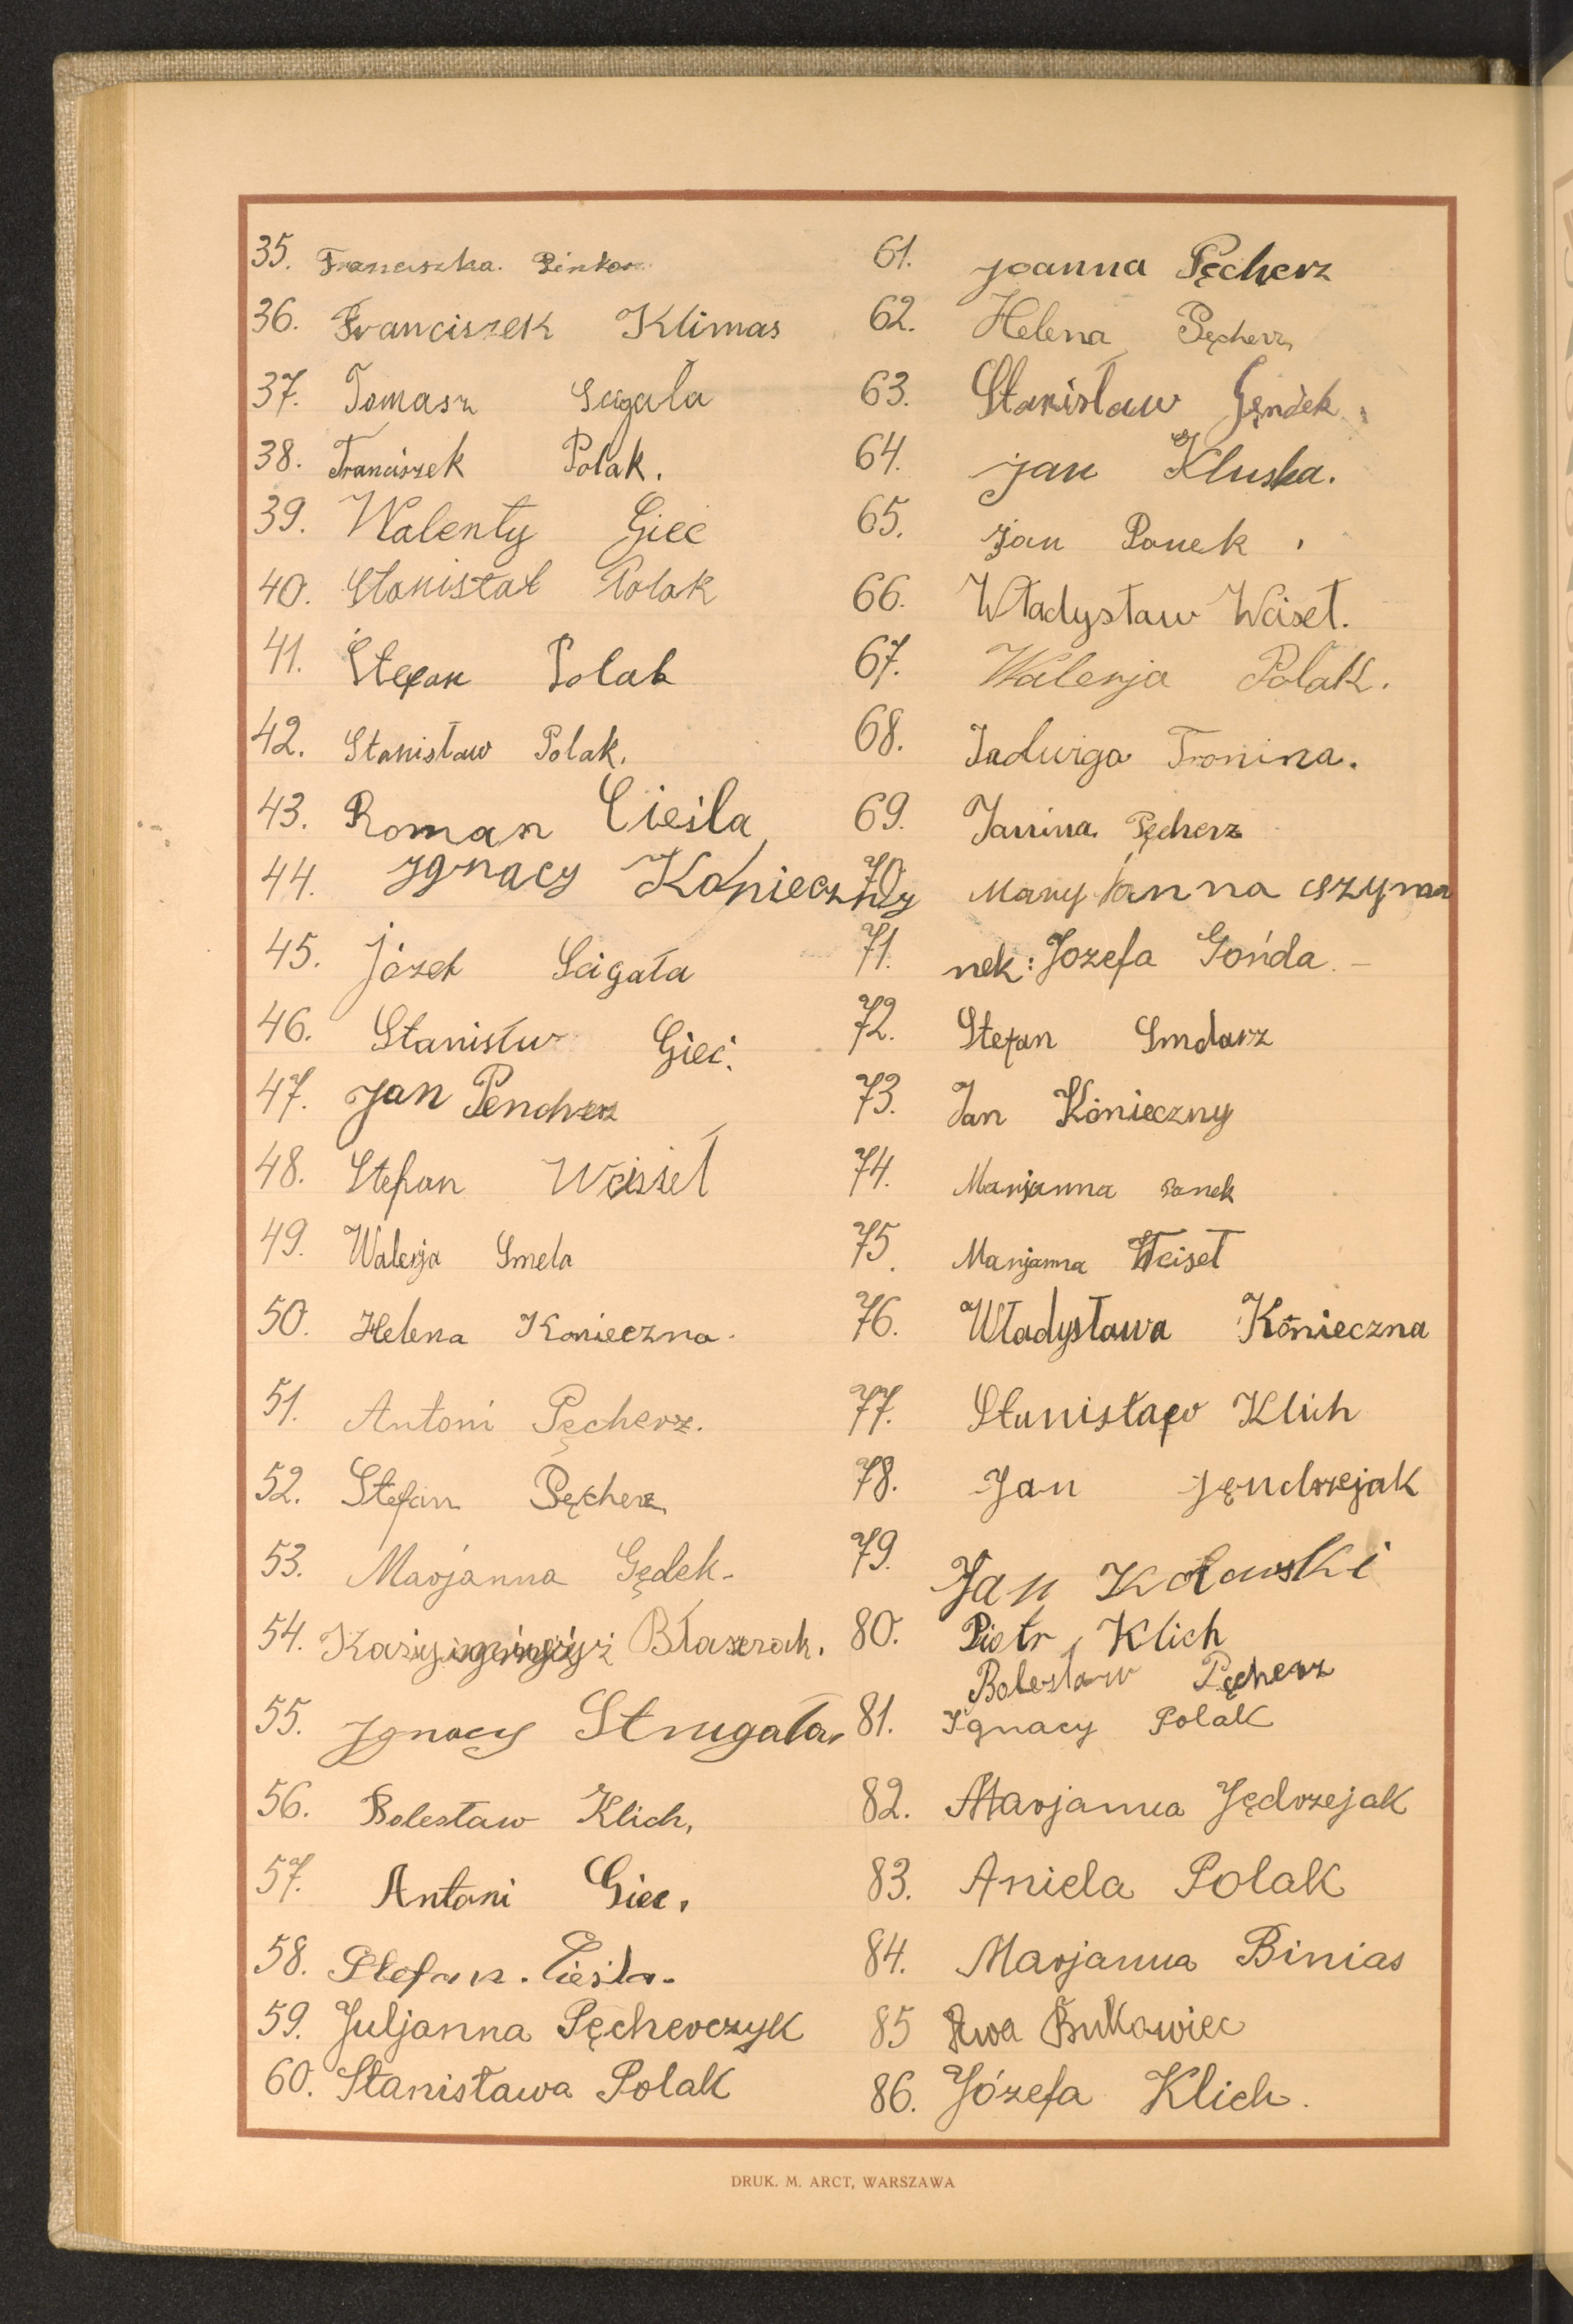 35. Franciszka Pinkosz
36. Franciszek Klimas
37. Tomasz Scigała
38. Franciszek Polak.
39. Walenty Giec
40. Stanistał Polak
41. Stefan Polak
42. Stanisław Polak.
43. Roman Cieśla
44. Jgnacy Konieczny
45. Józef Scigała
46. Stanisłw Gieć.
47. Jan Pencherz
48. Stefan Wcisseł
49. Walerja Smela
50. Helena Konieczna.
51. Antoni Pęcherz.
52. Stefan Pęcherz
53. Marjanna Gędek.
54. Błaszczak.
55. Jgnacy Strugała
56. Bolesław Klich,
57. Antoni Giec.
58. Stefan. Cieśla.
59. Juljanna Pęcherczyk
60. Stanisława Polak
61. Joanna Pęcherz
62. Helena Pęcherz
63. Stanisław Gęndek.
64. Jan Kluska.
65. Jan Panek.
66. Władysław Wciseł.
67. Walerja Polak.
68. Jadwiga Tronina.
69. Janina Pęcherz
70. Maryianna Szyma
71. nek: Jozefa Gońda. -
72. Stefan Smolarz
73. Jan Konieczny
74. Marjanna Panek
75. Marjanna Wciseł
76. Władysława Konieczna
77. Stanisław Klich
78. Jan Jęndrzejak
79. Jan Kotowski
80. Piotr Klich
Bolesław Pęcherz
81. Ignacy Polak
82. Marjanna Jędrzejak
83. Aniela Polak
84. Marjanna Binias
85 Ewa Bukowiec
86. Józefa Klich.
DRUK. M. ARCT, WARSZAWA